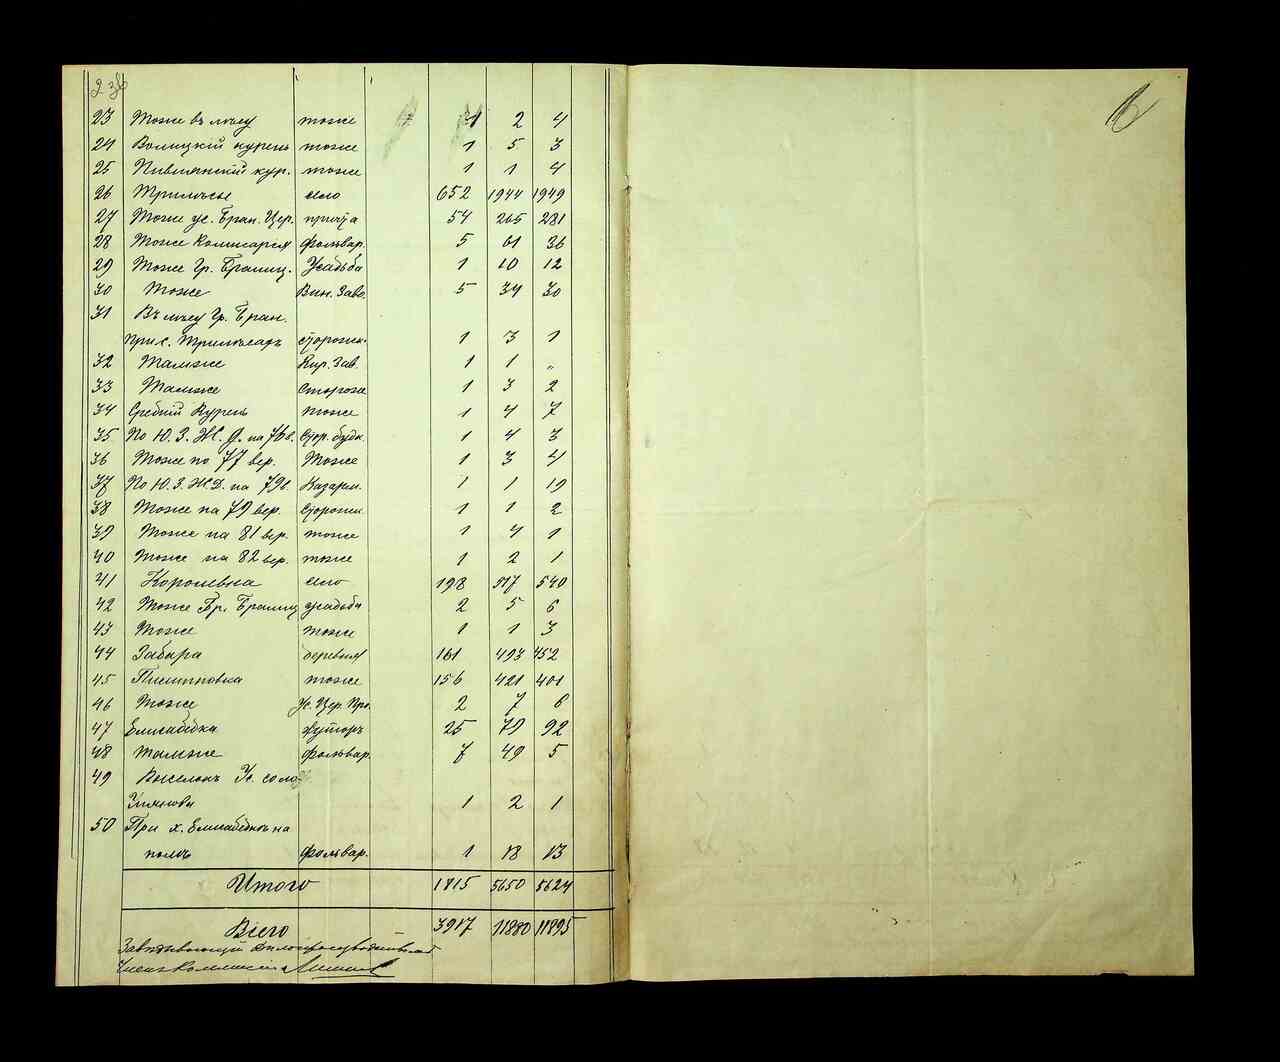 23 Тоже въ лѣсу тоже 1 2 4
24 Волицкій курень тоже 1 5 3
25 кур. тоже 1 1 4
26 Трилѣсы село 652 1944 1949
27 Тоже ус. Бран. Цер. причта 54 265 281
28 Тоже фольвар. 5 61 36
29 Тоже Гр. Браниц. Усадьба 1 10 12
30 Тоже Вин. Заво. 5 34 30
31 Въ лѣсу Гр. Бран.
при с. Трилѣсахъ сторожк. 1 3 1
32 Тамже Кир. Зав. 1 1 "
33 Тамже Сторож 1 3 2
34 Средній Курень тоже 1 4 7
35 По Ю. З. Ж. Д. на 76 в. Стор. будк. 1 4 3
36 Тоже по 77 вер. Тоже 1 3 4
37 По Ю. З. Ж. Д. на 79 в. Казарм. 1 1 19
38 Тоже на 79 вер. Сторожк 1 1 2
39 Тоже на 81 вер. тоже 1 4 1
40 Тоже на 82 вер. тоже 1 2 1
41 Королевка село 198 517 540
42 Тоже Гр. Браниц усадьба 2 5 6
43 Тоже тоже 1 1 3
44 Забара деревня 161 493 452
45 Пилиповка тоже 156 421 401
46 Тоже Ус. Цер. При. 2 7 6
47 Елисаветка хуторъ 25 79 92
48 Тамже фольвар. 7 49 5
49 Выселокъ
1 2 1
50 При х. Елисаветкѣ на
полѣ фольвар. 1 18 13
Итого 1715 5650 5624
Всего 3917 11880 11895
Завѣдывающій дѣлопроизводствомъ
Членъ Коммисіи